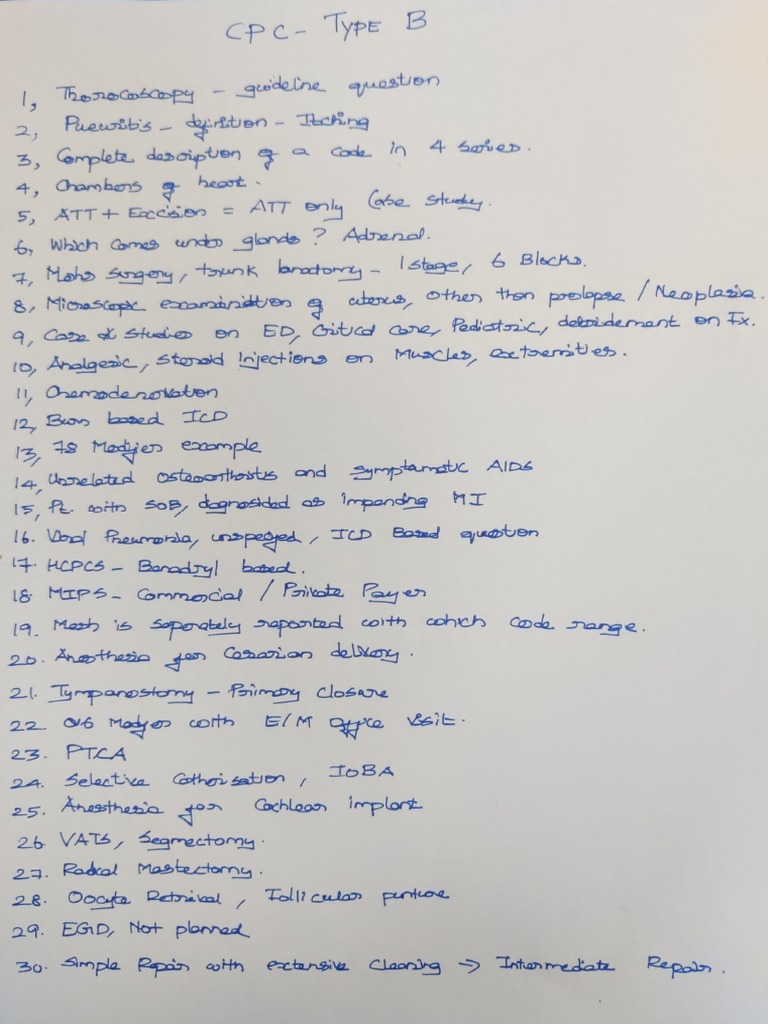 CPC - TYPE B
1, Thorocoscopy - guideline question
2, Puewitis - definition - Itching
3, Complete description of a code in 4 series.
4, Chambers of heart.
5, ATT + Excision = ATT only Case study.
6, Which comes under glands? Adrenal.
7, Mohs surgery, trunk anatomy - 1 stage, 6 Blocks.
8, Microscopic examination of uterus, other than prolapse / Neoplasia.
9, Case studies on ED, Critical care, Pediatric, debridement on Fx.
10, Analgesic, steroid injections on Muscles, extremities.
11, Chemodenervation
12, Burn based ICD
13, 78 Modifier example
14, Unrelated osteoarthritis and symptamatic AIDS
15, Pt. with SOB, diagnosided as impending MI
16. Viral Pneumonia, unspecified, ICD Based question
17. HCPCS - Benadryl based.
18. MIPS - Commercial / Private Payer
19. Mesh is seperately reported with which code range.
20. Anesthesia for Cesarian delivery.
21. Tympanostomy - Primary closure
22. Modifier with E/M office visit.
23. PTCA
24. Selective Catherisation,
25. Anesthesia for Cochlear implant
26. VATS, Segmectomy.
27. Radical Mastectomy.
28. Oocyte Retrival, Follicular puncture
29. EGD, Not planned
30. Simple Repair with extensive cleaning → Intermediate Repair.